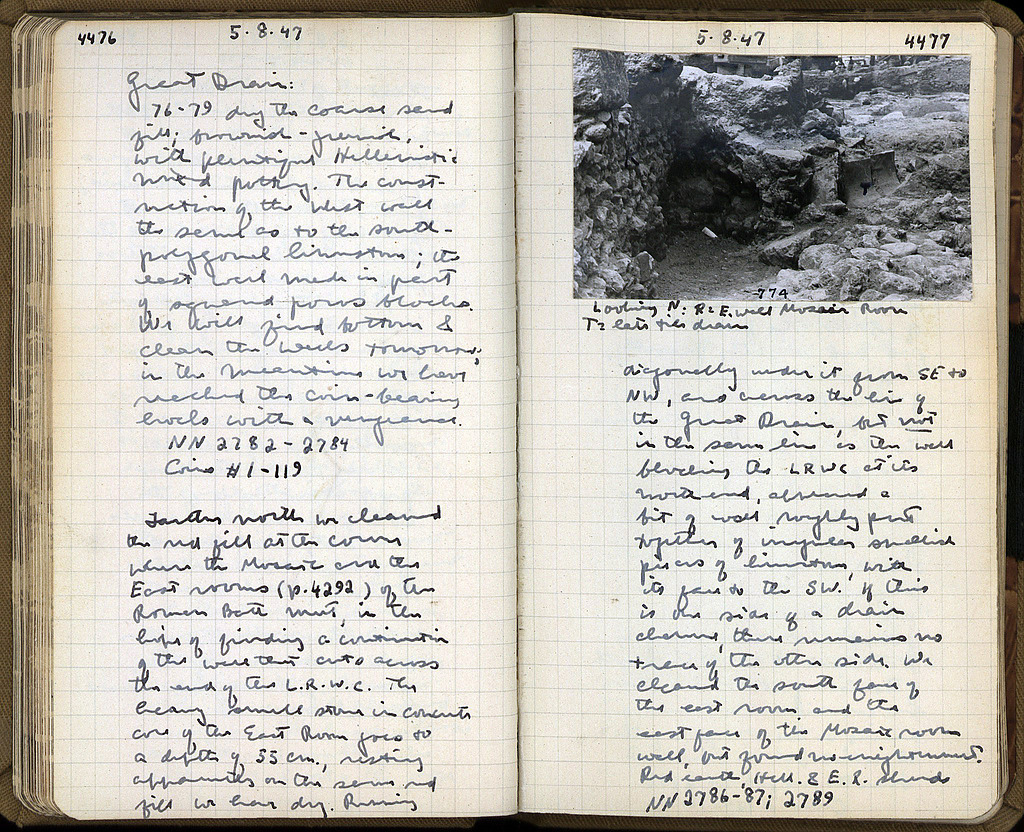 4476
5·8·47
Great Drain:
76-79 dig the coarse sand
fill; brownish-greenish,
with plentiful Hellenistic
mixed pottery. The const-
ruction of the west wall
the same as to the south-
polygonal limestone; the
east wall made in part
of squared poros blocks.
We will find bottom &
clean the walls tomorrow;
in the meantime we have
reached the coin-bearing
levels with a vengeance.
NN 2782-2784
Coins #1-119
Farther north we cleaned
the red fill at the corner
where the Mosaic and the
East rooms (p. 4292) of the
Roman Bath meet, in the
hope of finding a continuation
of the wall that cuts across
the end of the L.R.W.C. The
heavy small stone in concrete
core of the East Room goes to
a depth of 55 cm., resting
apparently on the same red
fill we have dug. Running
5·8·47
4477
774
Looking N: R2 E. wall Mosaic Room
T2 late tile drain
diagonally under it from SE to
NW, and across the line of
the Great Drain, but not
in the same line as the wall
blocking the LRWC at its
north end, appeared a
bit of wall roughly put
together of irregular smallish
pieces of limestone, with
its face to the SW. If this
is one side of a drain
channel, there remains no
trace of the other side. We
cleaned the south face of
the east room and the
east face of the Mosaic room
wall, but found no enlightenment.
Red earth, Hell. & E.R. sherds
NN 2786-87; 2789